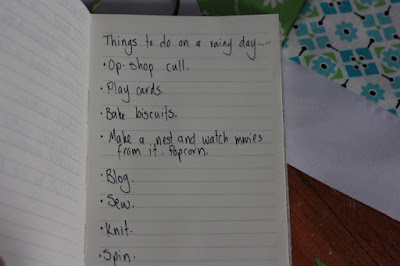 Things to do on a rainy day.....
• Op-shop call.
• Play cards.
• Bake biscuits.
• Make a nest and watch movies
from it. Popcorn.
• Blog.
• Sew.
• Knit.
• Spin.